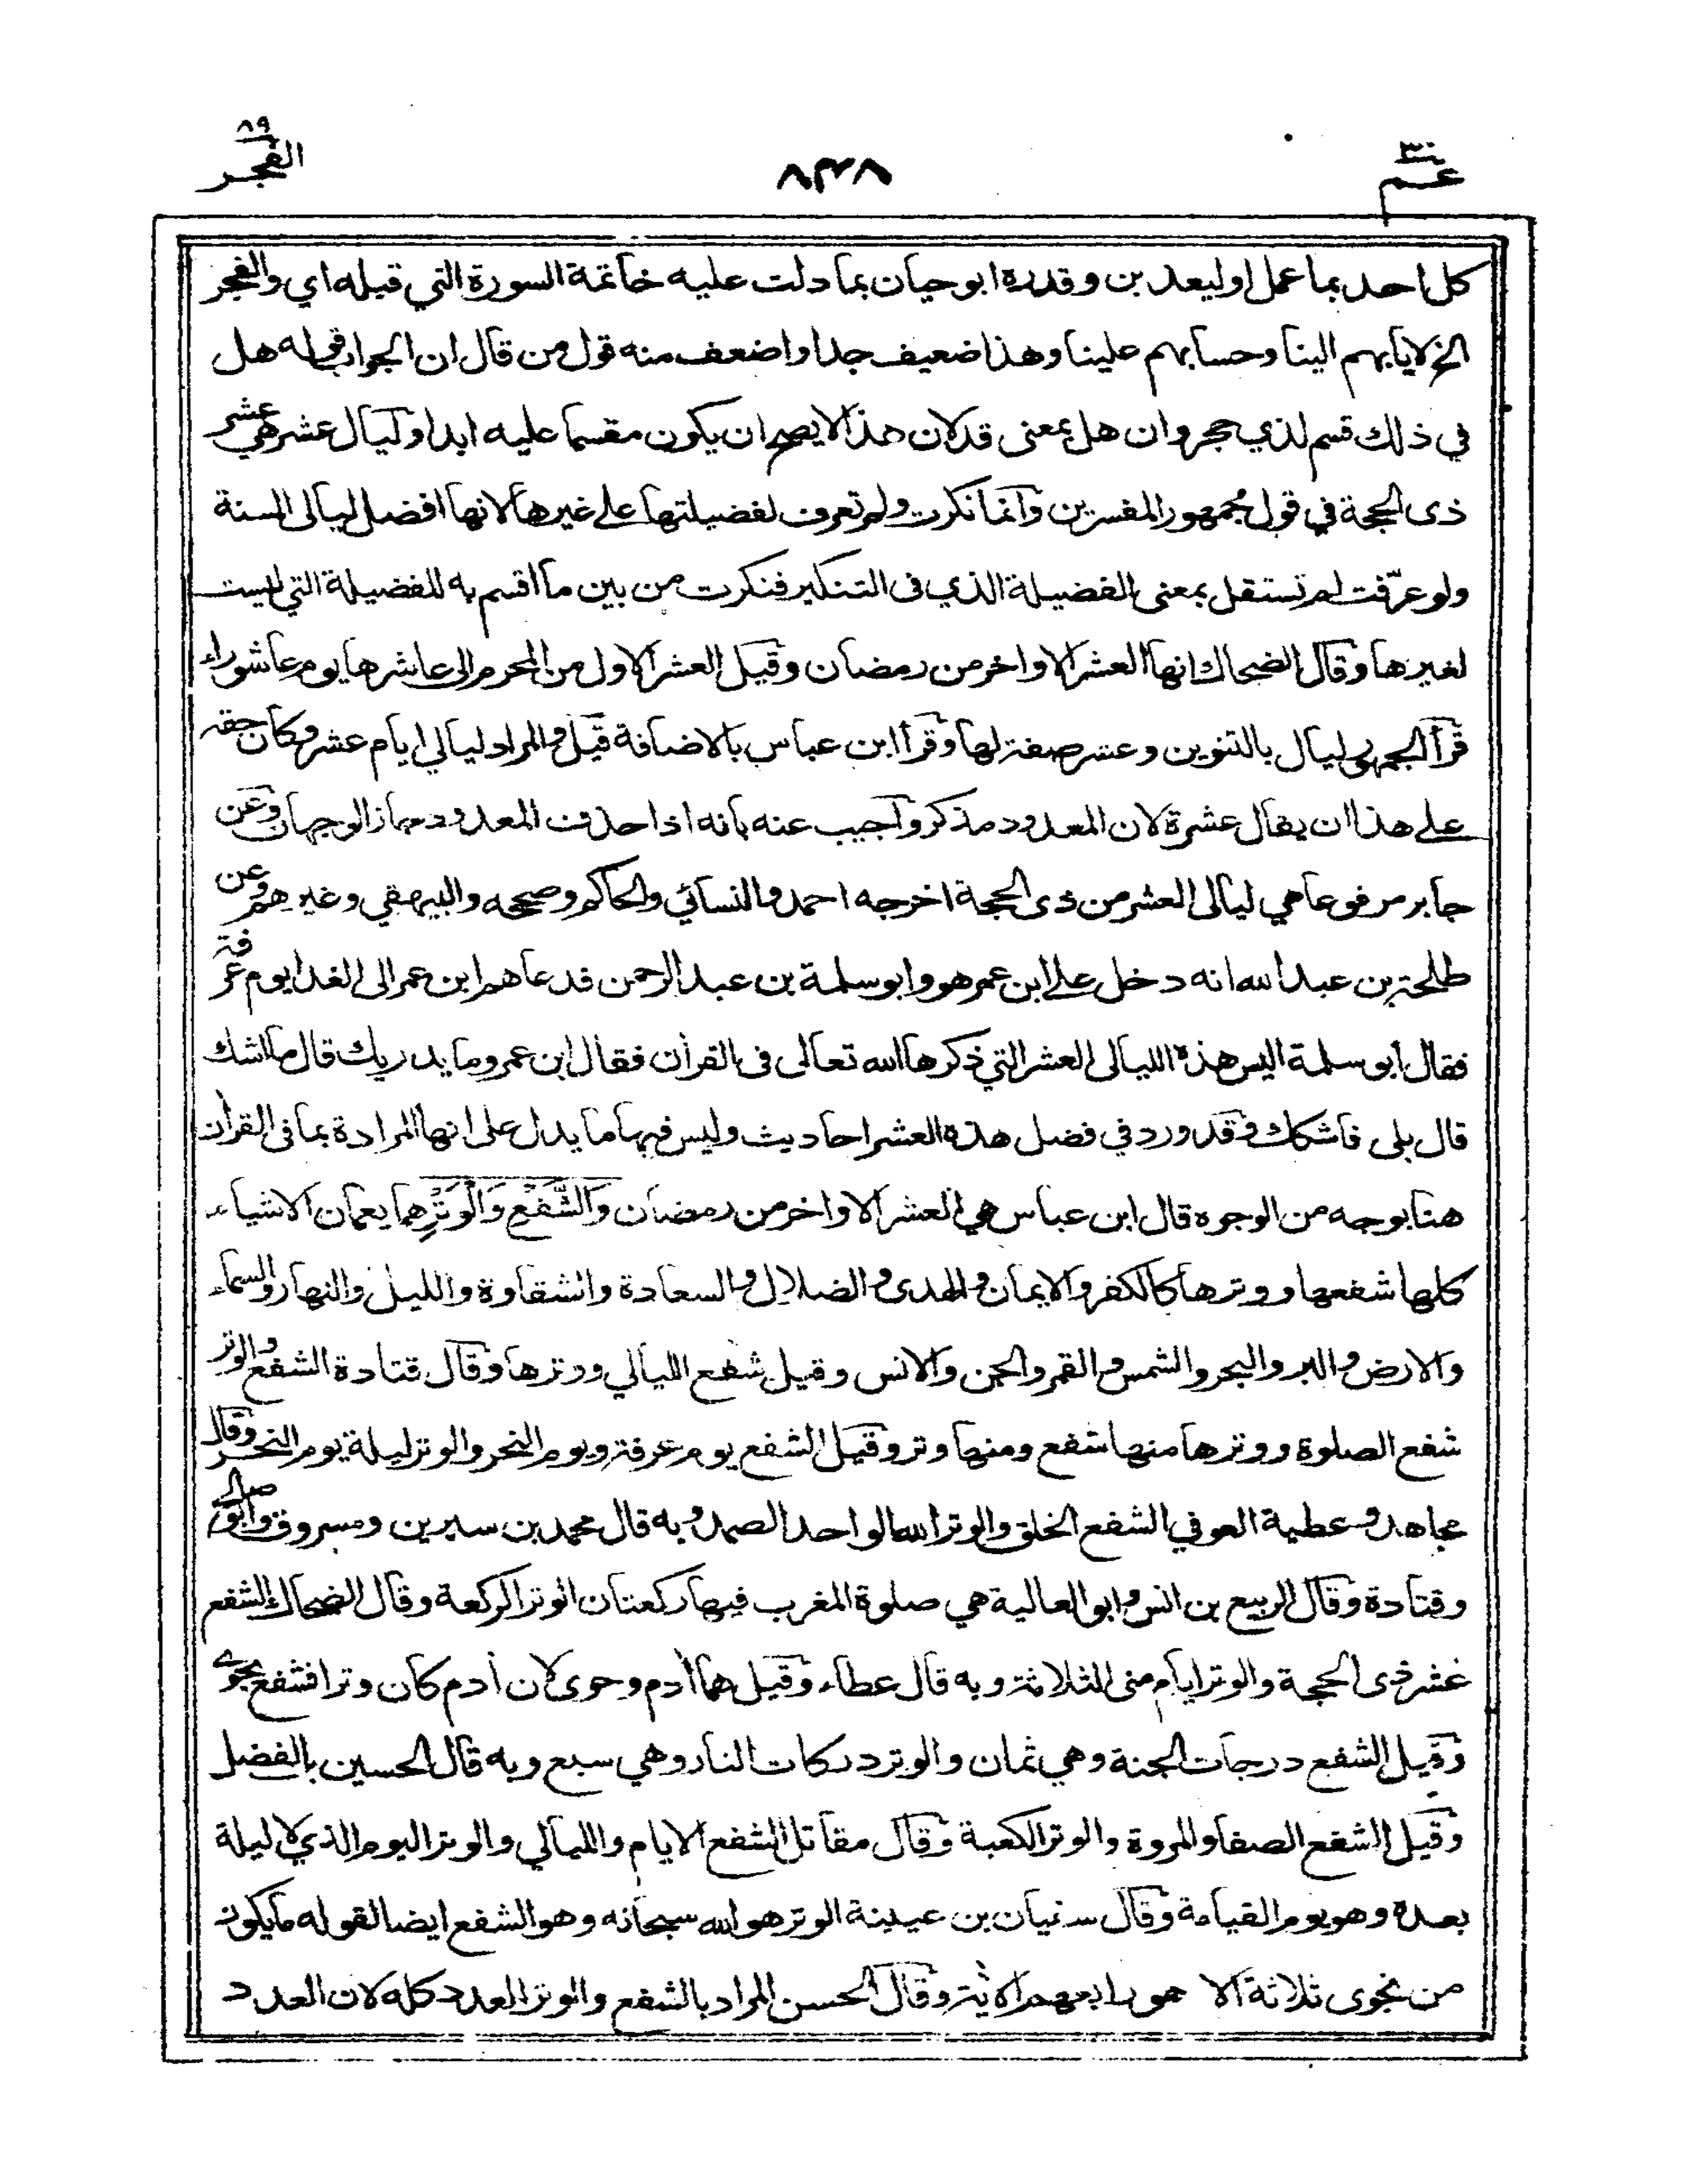 ٨٩
الفجر
٨٣٨
٣٠
عم
كل احد بما عمل او ليعذبن وقدره ابو حيان بما دلت عليه خاتمة السورة التي قبله اي والفجر
الخ لايابهم الينا وحسابهم علينا وهذا ضعيف جدا واضعف منه قول من قال ان الجواب قوله هل
في ذلك قسم لذي حجر وان هل بمعنى قد لان هذا لا يصح ان يكون مقسما عليه ابدا وليال عشر هي عشر
ذى الحجة في قول جمهور المفسرين وانما نكرت ولم تعرف لفضيلتها على غيرها لانها افضل ليالى السنة
ولو عرّفت لم تستقل بمعنى الفضيلة الذي فى التنكير فنكرت من بين ما اقسم به للفضيلة التي ليست
لغيرها وقال الضحاك انها العشر الاواخر من رمضان وقيل العشر الاول من المحرم الى عاشرها يوم عاشوراء
قرأ الجمهور ليال بالتنوين وعشر صفة لها وقرأ ابن عباس بالاضافة قيل والمراد ليالي ايام عشر وكان حقه
على هذا ان يقال عشرة لان المعدود مذكر واجيب عنه بانه اذا حذف المعدود جاز الوجهان وعن
جابر مرفوعا هي ليالى العشر من ذى الحجة اخرجه احمد والنسائي والحاكم وصححه والبيهقي وغيرهم وعن
طلحة بن عبد الله انه دخل على ابن عمر هو وابو سلمة بن عبد الرحمن فدعاهم ابن عمر الى الغدا يوم عرفة
فقال ابو سلمة اليس هذه الليالى العشر التي ذكرها الله تعالى فى القرأن فقال ابن عمر وما يدريك قال ما اشك
قال بلى فاشكك وقد ورد في فضل هذه العشر احاديث وليس فيها ما يدل على انها المرادة بما فى القرأن
هنا بوجه من الوجوه قال ابن عباس هي العشر الاواخر من رمضان وَالشَّفْعِ وَالْوَتْرِ هما يعمان الاشياء
كلها شفعها ووترها كالكفر والايمان والهدى والضلال والسعادة والشقاوة والليل والنهار والسماء
والارض والبر والبحر والشمس والقمر والجن والانس وقيل شفع الليالي ووترها وقال قتادة الشفع والوتر
شفع الصلوة ووترها منها شفع ومنها وتر وقيل الشفع يوم عرفة ويوم النحر والوتر ليلة يوم النحر وقال
مجاهد وعطية العوفي الشفع الخلق والوتر الله الواحد الصمد وبه قال محمد بن سيرين ومسروق وابو صالح
وقتادة وقال الربيع بن انس وابو العالية هي صلوة المغرب فيها ركعتان الوتر الركعة وقال الضحاك الشفع
عشر ذى الحجة والوتر ايام منى الثلاثة وبه قال عطاء وقيل هما أدم وحوى لان أدم كان وترا فشفع بحوى
وقيل الشفع درجات الجنة وهي ثمان والوتر دركات النار وهي سبع وبه قال الحسين بالفضل
وقيل الشفع الصفا والمروة والوتر الكعبة وقال مقاتل الشفع الايام والليالي والوتر اليوم الذي لا ليلة
بعده وهو يوم القيامة وقال سفيان بن عيينة الوتر هو الله سبحانه وهو الشفع ايضا لقوله ما يكون
من نجوى ثلاثة الا هو رابعهم الأية وقال الحسن المراد بالشفع والوتر العدد كله لان العدد